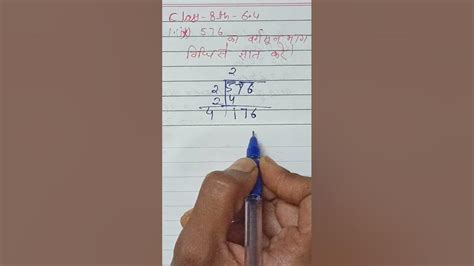 Class-8th-6.4
1.(ix) 576 का वर्गमूल भाग
विधि से ज्ञात करें।
2
2 576
2 4
4 176